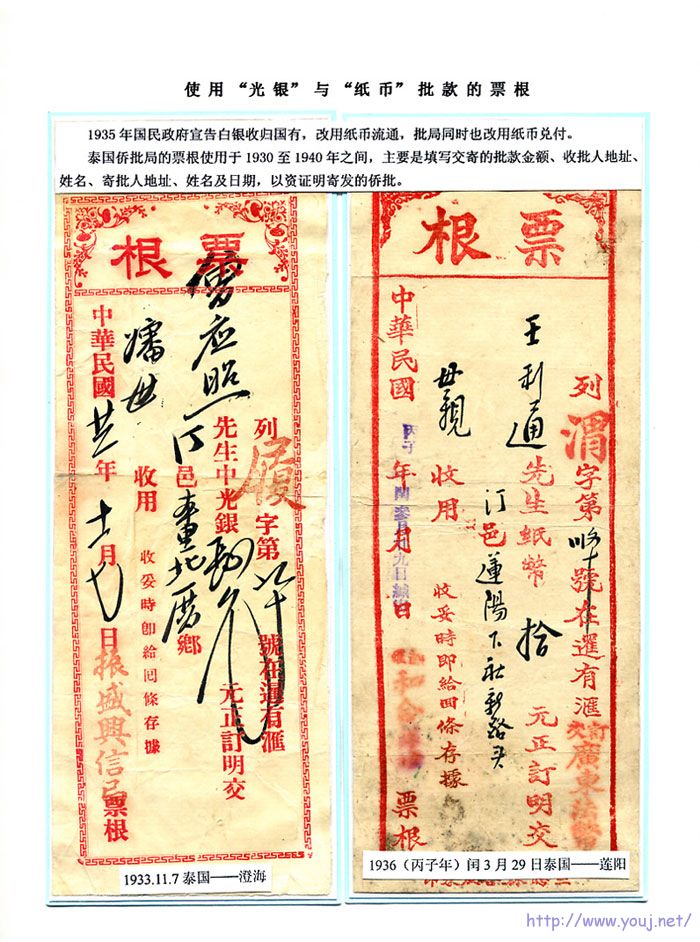 使用“光银”与“纸币”批款的票根
1935年国民政府宣告白银收归国有，改用纸币流通，批局同时也改用纸币兑付。
泰国侨批局的票根使用于1930至1940年之间，主要是填写交寄的批款金额、收批人地址、
姓名、寄批人地址、姓名及日期，以资证明寄发的侨批。
票根
列 字第 號在暹有滙
應照先生中光銀 元正訂明交
邑 鄉
收用 收妥時即給囘條存據
中華民國 年十一月 日振盛興信局票根
票根
列渭字第 號在暹有滙
廣東法幣
王利通先生紙幣拾元正訂明交
汀邑蓮陽下社新路头
母親收用 收妥時即給囘條存據
中華民國丙子年閏 月 日 和合 票根
1933.11.7泰国——澄海
1936（丙子年）闰3月29日泰国——莲阳
http://www.youj.net/